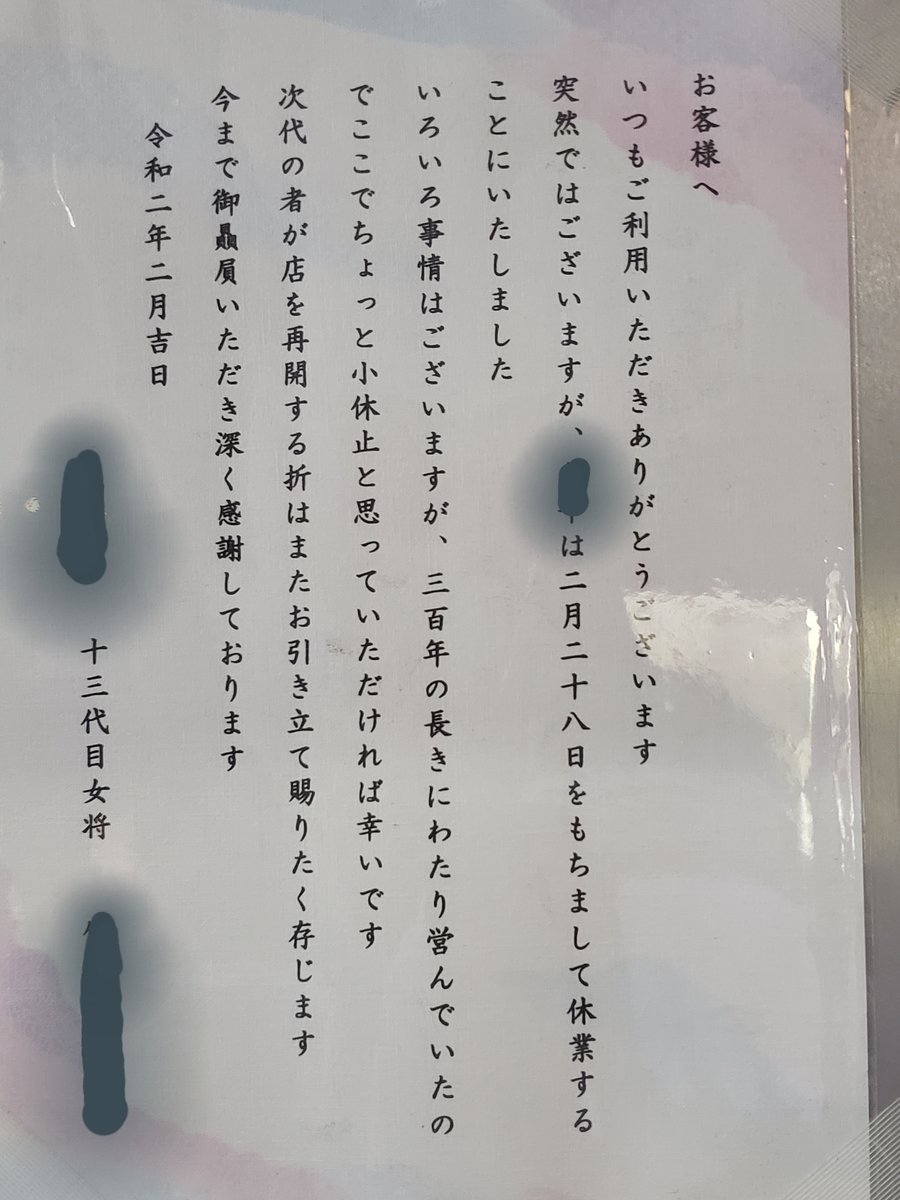 お客様へ
いつもご利用いただきありがとうございます
突然ではございますが、は二月二十八日をもちまして休業する
ことにいたしました
いろいろ事情はございますが、三百年の長きにわたり営んでいたの
でここでちょっと小休止と思っていただければ幸いです
次代の者が店を再開する折はまたお引き立て賜りたく存じます
今まで御贔屓いただき深く感謝しております
令和二年二月吉日
十三代目女将